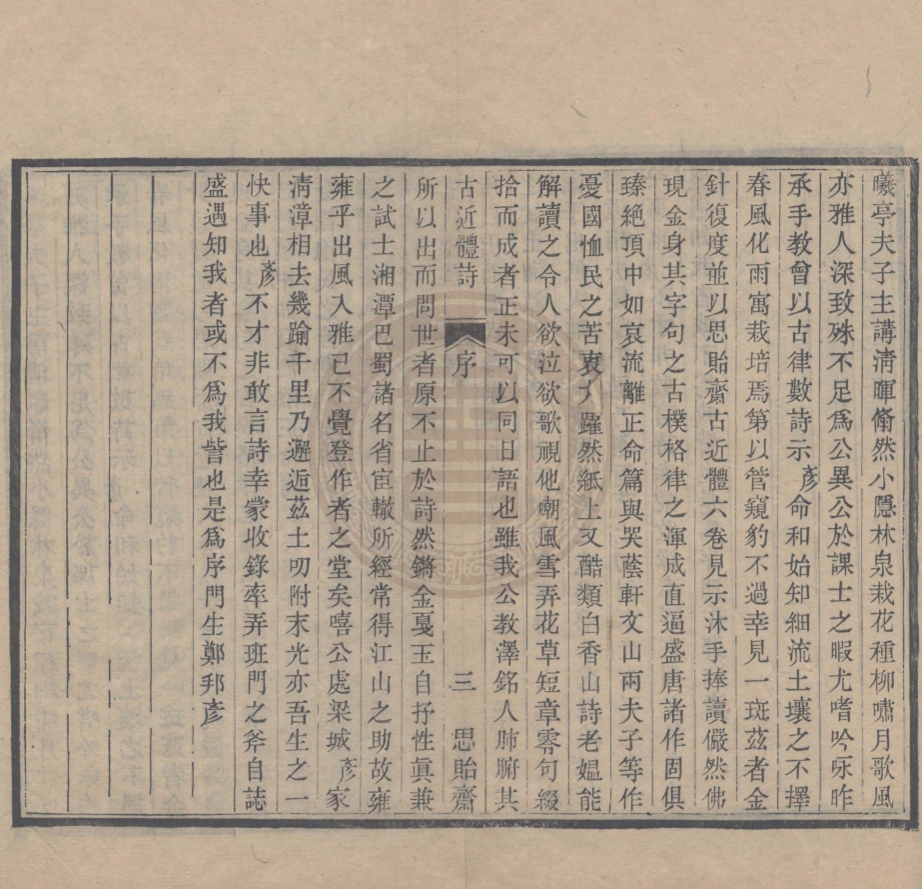 曦亭夫子主講清暉翛然小隱林泉栽花種柳嘯月歌風
亦雅人深致殊不足爲公異公於課士之暇尤嗜吟咏昨
承手教曾以古律數詩示彥命和始知細流土壤之不擇
春風化雨寓栽培焉第以管窺豹不過幸見一斑茲者金
針復度並以思貽齋古近體六卷見示沐手捧讀儼然佛
現金身其字句之古樸格律之渾成直逼盛唐諸作固俱
臻絶頂中如哀流離正命篇與哭蔭軒文山兩夫子等作
憂國恤民之苦衷大躍然紙上又酷類白香山詩老媼能
解讀之令人欲泣欲歌視他嘲風雪弄花草短章零句綴
拾而成者正未可以同日語也雖我公教澤銘人肺腑其
古近體詩 序 三 思貽齋
所以出而問世者原不止於詩然鏘金戛玉自抒性眞兼
之試士湘潭巴蜀諸名省宦轍所經常得江山之助故雍
雍乎出風入雅已不覺登作者之堂矣嘻公處梁城彥家
清漳相去幾踰千里乃邂逅茲土叨附末光亦吾生之一
快事也彥不才非敢言詩幸蒙收錄率弄班門之斧自誌
盛遇知我者或不爲我訾也是爲序門生鄭邦彥